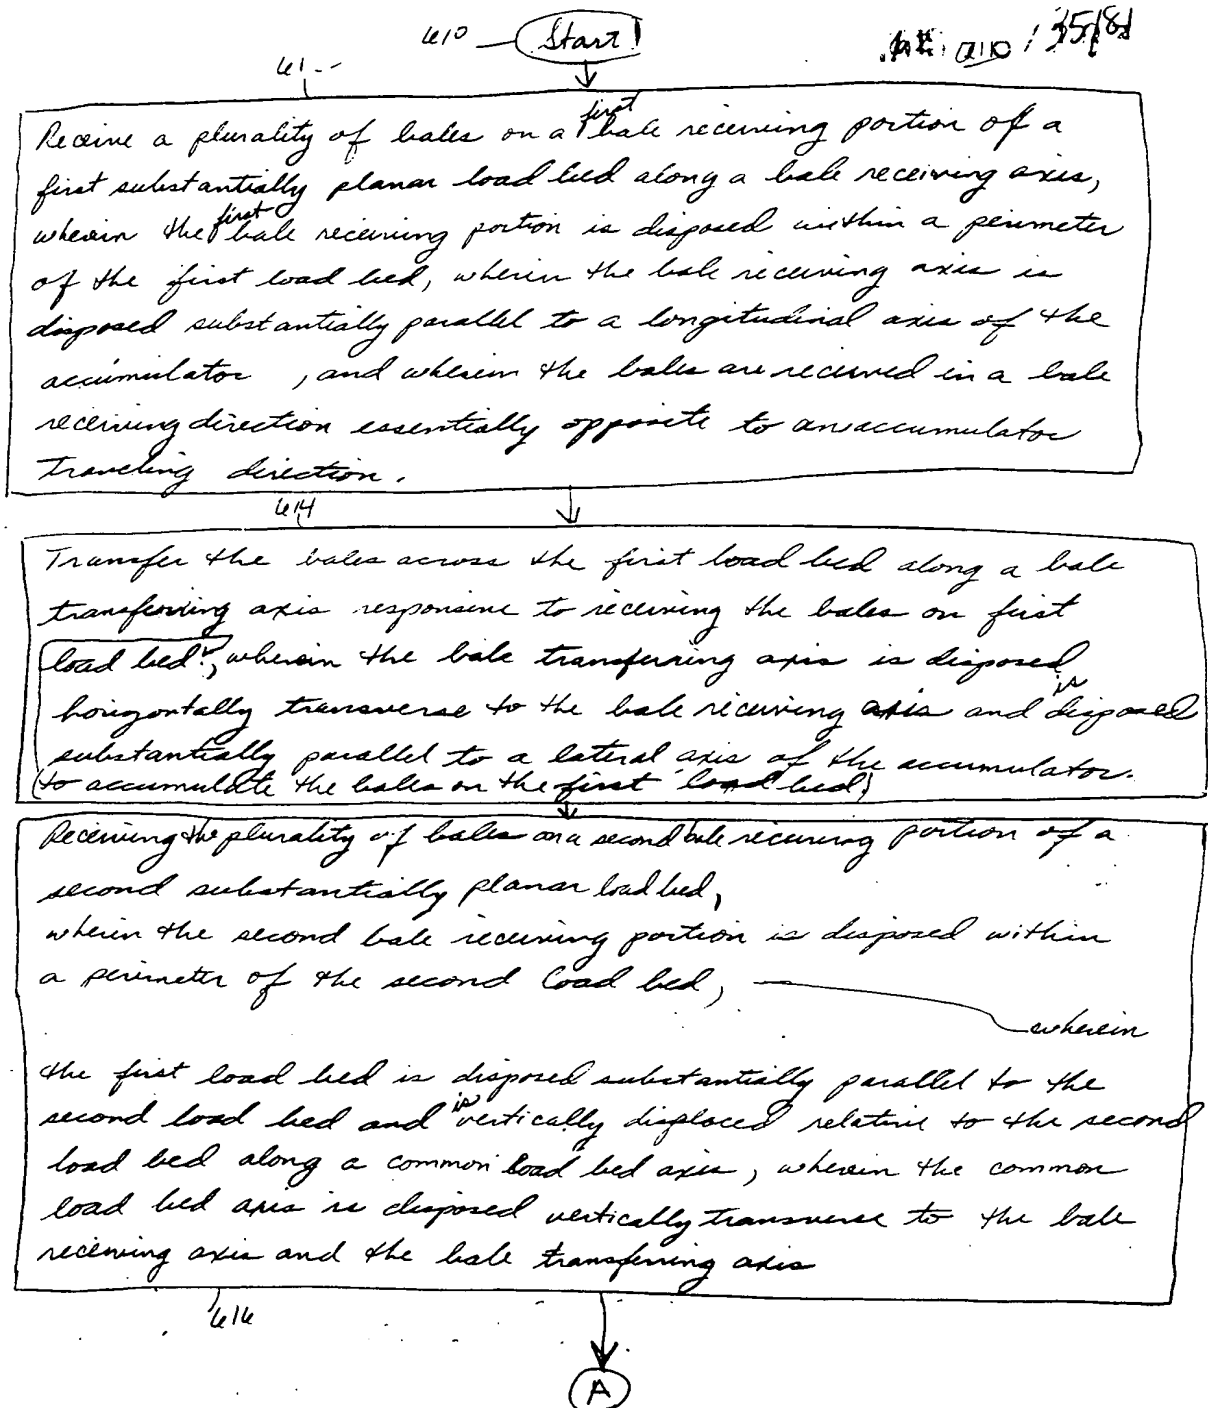 610 Start
Receive a plurality of bales on a first bale receiving portion of a
first substantially planar load bed along a bale receiving axis,
wherein the first bale receiving portion is disposed within a perimeter
of the first load bed, wherein the bale receiving axis is
disposed substantially parallel to a longitudinal axis of the
accumulator , and wherein the bales are received in a bale
receiving direction essentially opposite to an accumulator
traveling direction.
614
Transfer the bales across the first load bed along a bale
transferring axis responsive to receiving the bales on first
load bed, wherein the bale transferring axis is disposed
horizontally transverse to the bale receiving axis and is disposed
substantially parallel to a lateral axis of the accumulator.
(to accumulate the bales on the first load bed)
Receiving the plurality of bales on a second bale receiving portion of a
second substantially planar load bed,
wherein the second bale receiving portion is disposed within
a perimeter of the second load bed,
wherein
the first load bed is disposed substantially parallel to the
second load bed and is vertically displaced relative to the second
load bed along a common load bed axis, wherein the common
load bed axis is disposed vertically transverse to the bale
receiving axis and the bale transferring axis
616
A